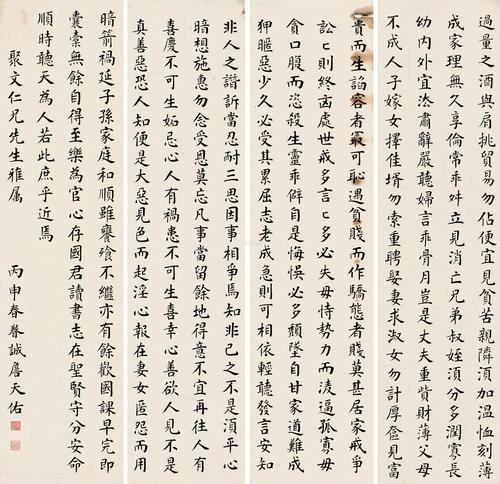 過量之酒與肩挑貿易勿佔便宜見貧苦親隣須加温恤刻薄
成家理無久享倫常乖舛立見消亡兄弟叔姪須分多潤寡長
幼内外宜法肅辭嚴聽婦言乖骨月豈是丈夫重貲財薄父母
不成人子嫁女擇佳壻勿索重聘娶妻求淑女勿計厚奩見富
貴而生諂容者最可恥遇貧賤而作驕態者賤莫甚居家戒爭
訟〻則終凶處世戒多言〻多必失毋恃勢力而凌逼孤寡毋
貪口腹而恣殺生靈乖僻自是悔悞必多頹墮自甘家道難成
狎暱惡少久必受其累屈志老成急則可相依輕聽發言安知
非人之譖訴當忍耐三思因事相爭焉知非己之不是須平心
暗想施惠勿念受恩莫忘凡事當留餘地得意不宜再往人有
喜慶不可生妬忌心人有禍患不可生喜幸心善欲人見不是
真善惡恐人知便是大惡見色而起淫心報在妻女匿怨而用
暗箭禍延子孫家庭和順雖饔飧不繼亦有餘歡國課早完即
囊橐無餘自得至樂為官心存國君讀書志在聖賢守分安命
順時聽天為人若此庶乎近焉
聚文仁兄先生雅屬
丙申春眷誠詹天佑